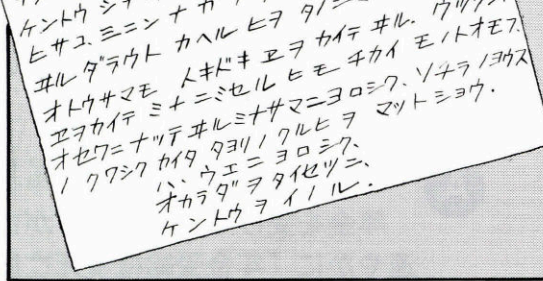 ケントウ
ヒサコ、ミンナ
ヰル ダラウト カヘル ヒヲ タノシ
オトウサマモ トキドキ ヱヲ カイテ ヰル. ウツクシ
ヱヲカイテ ミナニミセル ヒモ チカイ モノトオモフ.
オセワニナッテヰルミナサマニヨロシク、ソチラノヨウス
ノ クワシク カイタ タヨリノクルヒヲ マットショウ.
ハ、ウエニヨロシク、
オカラダヲタイセツニ、
ケントウヲイノル.